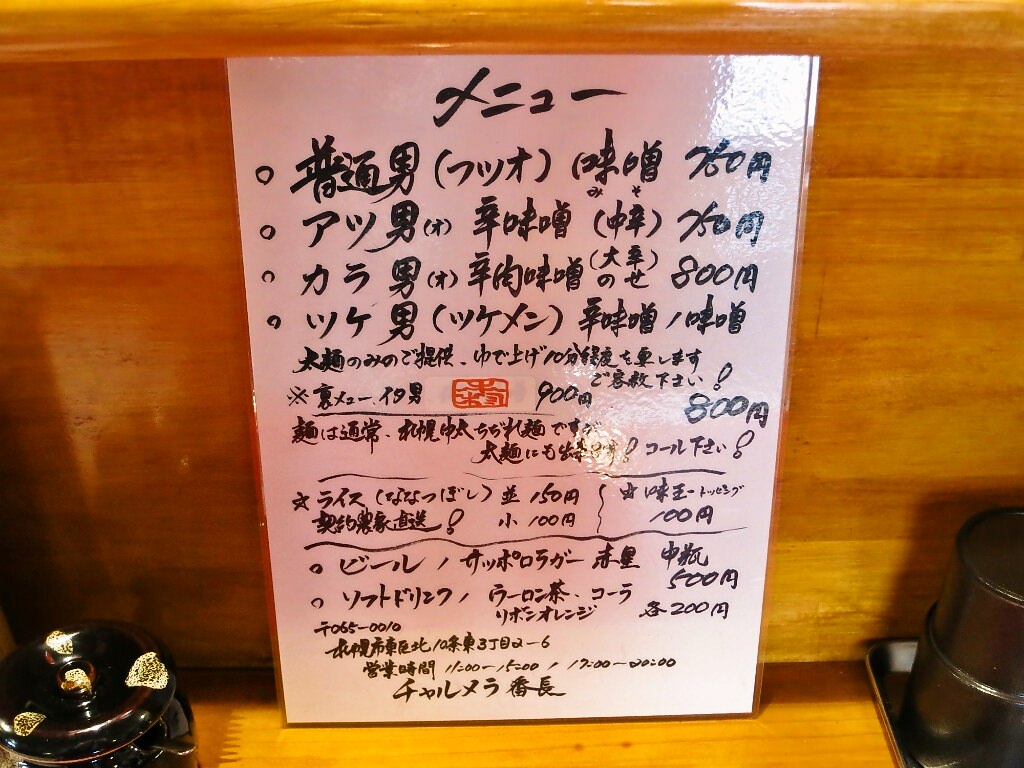 メニュー
普通男(フツオ) 味噌 750円
みそ
アツ男(オ) 辛味噌(中辛) 750円
カラ男(オ) 辛肉味噌のせ(大辛) 800円
ツケ男(ツケメン) 辛味噌/味噌
太麺のみのご提供、ゆで上げ10分程度を要します
ご容赦下さい!
800円
※裏メニュー、イタ男 900円
麺は通常、札幌中太ちぢれ麺ですが
太麺にも出来ます! コール下さい!
☆ライス(ななつぼし) 並 150円
契約農家直送! 小 100円
☆味玉トッピング
100円
ビール/サッポロラガー赤星 中瓶
500円
ソフトドリンク/ウーロン茶、コーラ
リボンオレンジ 各200円
〒065-0010
札幌市東区北10条東3丁目2-6
営業時間 11:00-15:00/17:00-20:00
チャルメラ番長